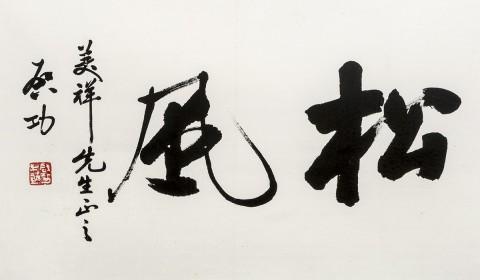 松風
美祥先生正之
启功